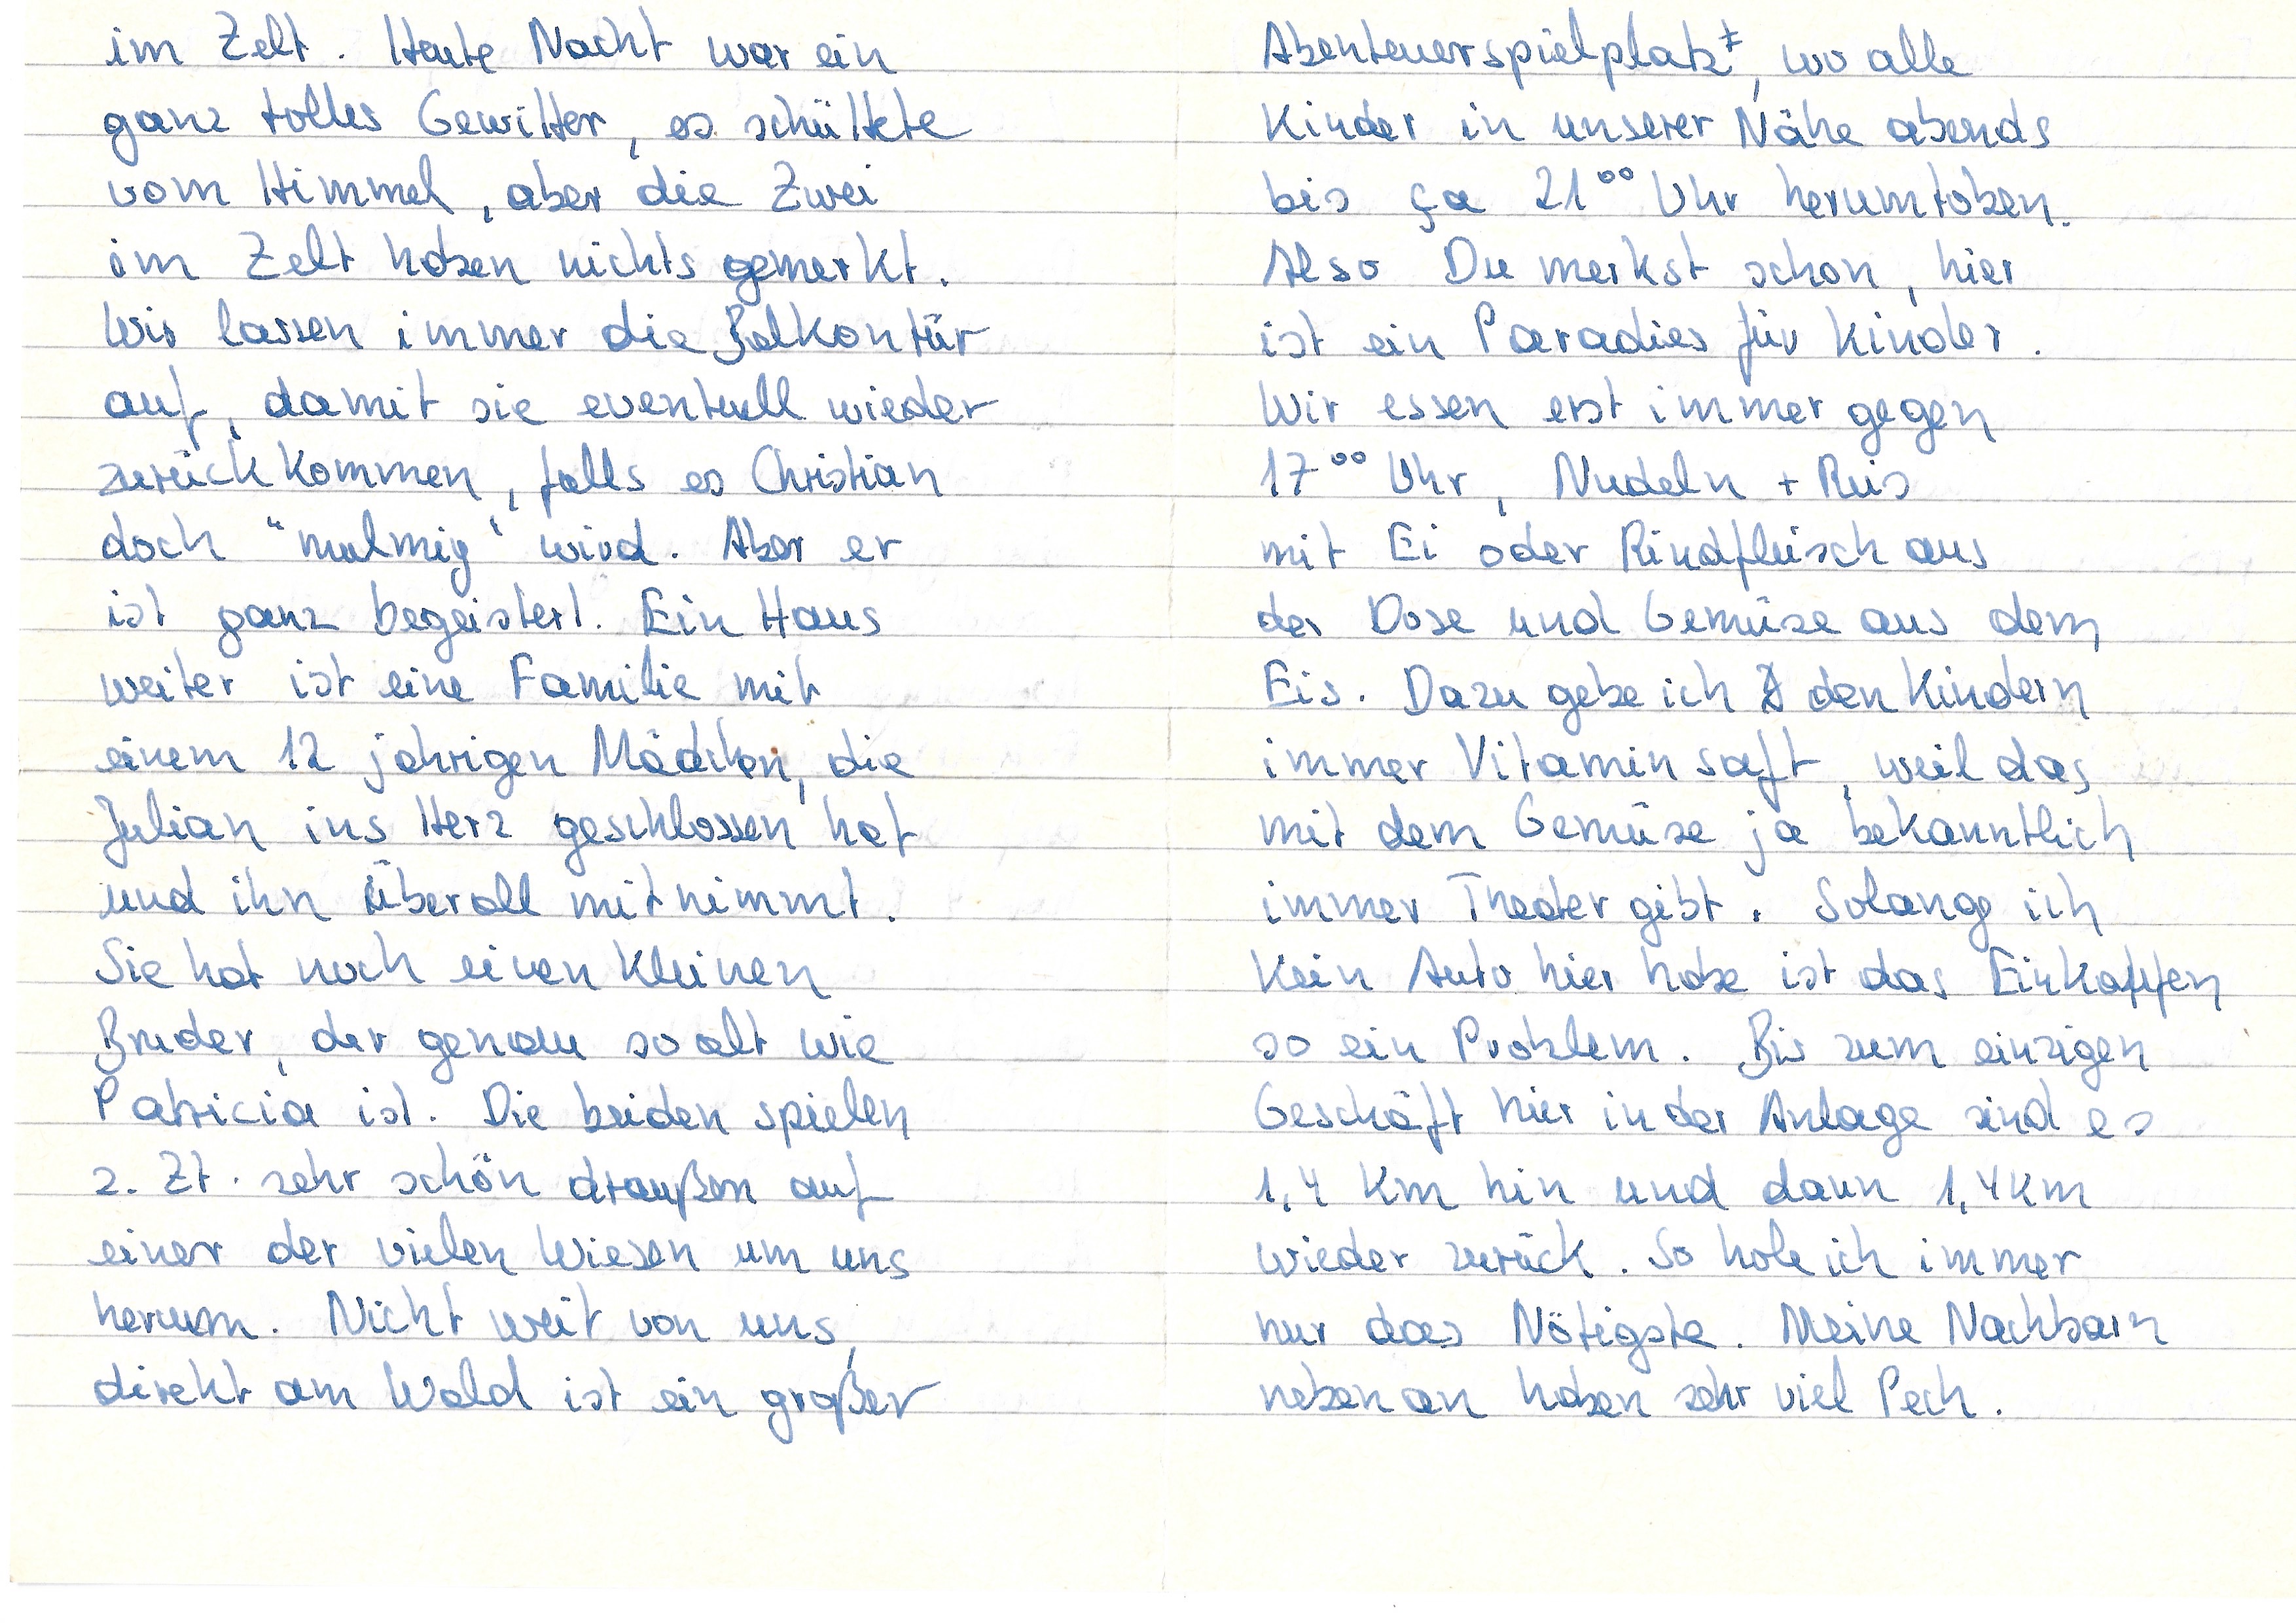 im Zelt. Heute Nacht war ein
ganz tolles Gewitter, es schüttete
vom Himmel, aber die Zwei
im Zelt haben nichts gemerkt.
Wir lassen immer die Balkontür
auf, damit sie eventuell wieder
zurückkommen, falls es Christian
doch "mulmig" wird. Aber er
ist ganz begeistert. Ein Haus
weiter ist eine Familie mit
einem 12 jährigen Mädchen, die
Julian ins Herz geschlossen hat
und ihn überall mitnimmt.
Sie hat noch einen kleinen
Bruder, der genau so alt wie
Patricia ist. Die beiden spielen
z. Zt. sehr schön draußen auf
einer der vielen Wiesen um uns
herum. Nicht weit von uns,
direkt am Wald ist ein großer
Abenteuerspielplatz, wo alle
Kinder in unserer Nähe abends
bis ça 21°° Uhr herumtoben.
Also Du merkst schon, hier
ist ein Paradies für Kinder.
Wir essen erst immer gegen
17°° Uhr, Nudeln + Reis
mit Ei oder Rindfleisch aus
der Dose und Gemüse aus dem
Eis. Dazu gebe ich den Kindern
immer Vitaminsaft, weil das
mit dem Gemüse ja bekanntlich
immer Theater gibt. Solange ich
kein Auto hier habe ist das Einkaufen
so ein Problem. Bis zum einzigen
Geschäft hier in der Anlage sind es
1,4 Km hin und dann 1,4 Km
wieder zurück. So hole ich immer
nur das Nötigste. Meine Nachbarn
nebenan haben sehr viel Pech.